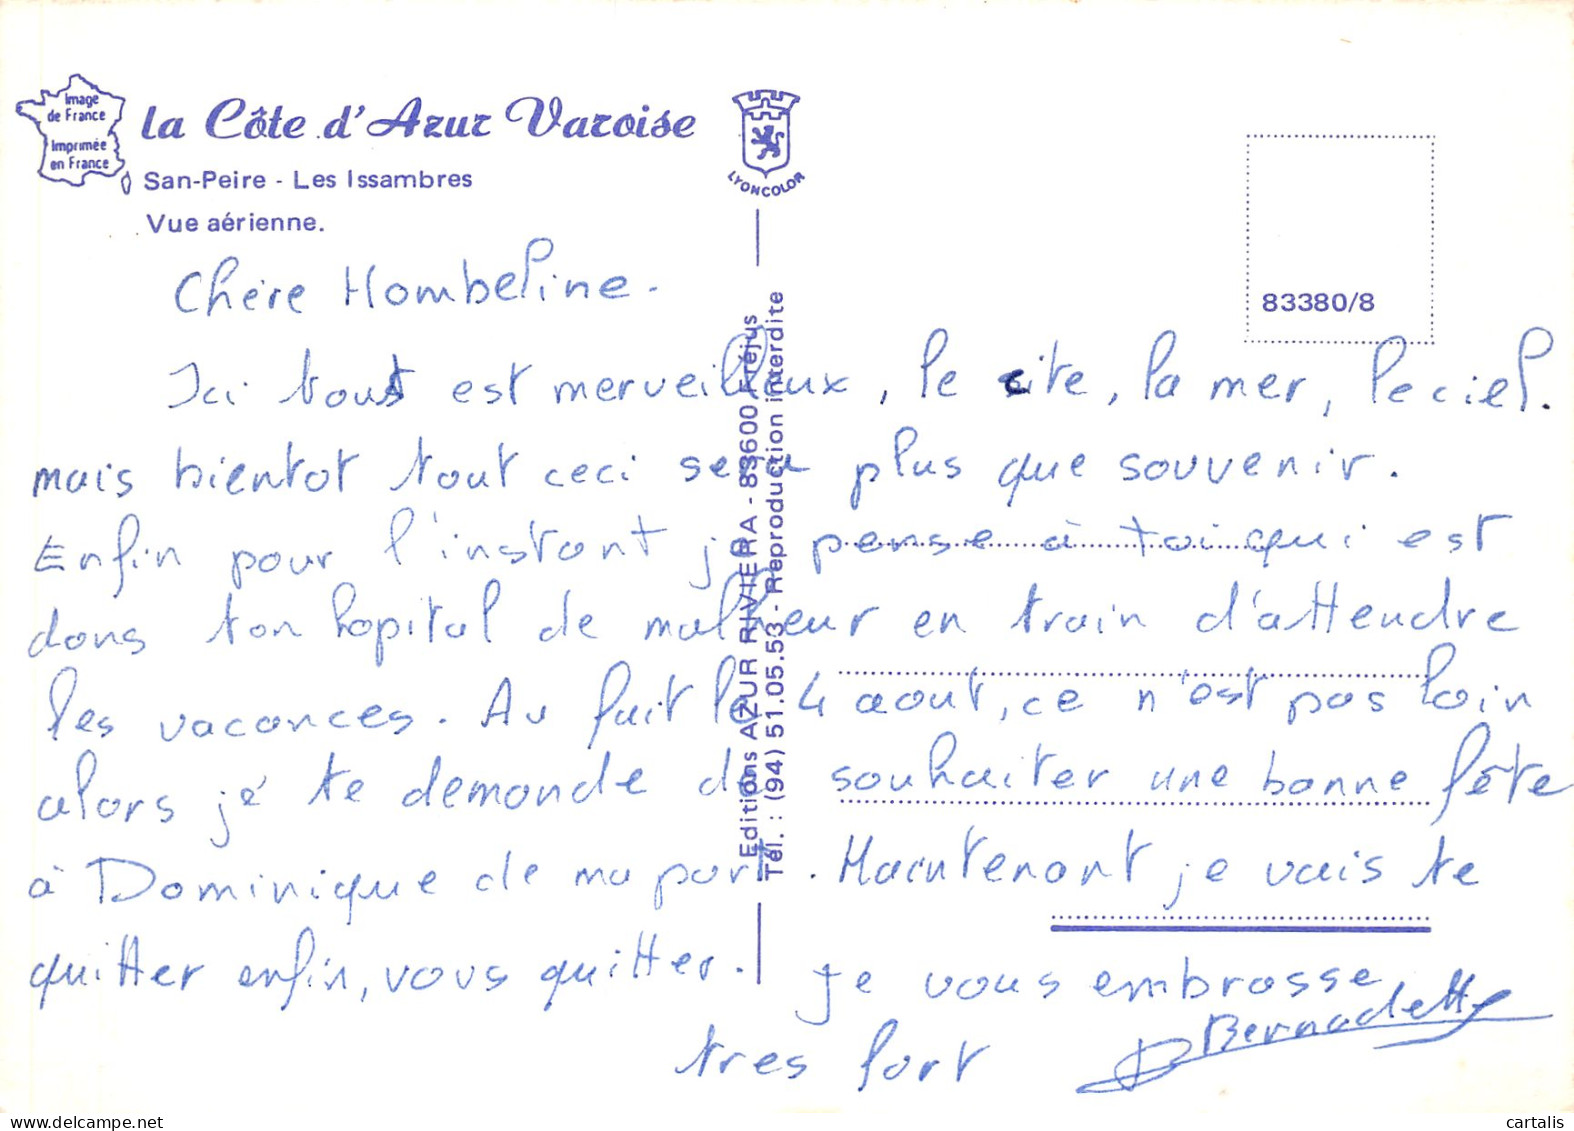 Image
de France
Imprimée
en France
la Côte d'Azur Varoise
San-Peire - Les Issambres
Vue aérienne.
LYONCOLOR
83380/8
Editions AZUR RIVIERA - 83600 Fréjus
Tél. : (94) 51.05.53 - Reproduction interdite
Chère Hombeline.
Ici tout est merveilleux, le site, la mer, le ciel.
mais bientot tout ceci sera plus que souvenir.
Enfin pour l'instant je pense à toi qui est
dans ton hopital de malheur en train d'attendre
les vacances. Au fait le 4 aout, ce n'est pas loin
alors je te demande de souhaiter une bonne fête
à Dominique de ma part. Maintenant je vais te
quitter enfin, vous quitter. je vous embrasse
tres fort Bernadette
cartalis